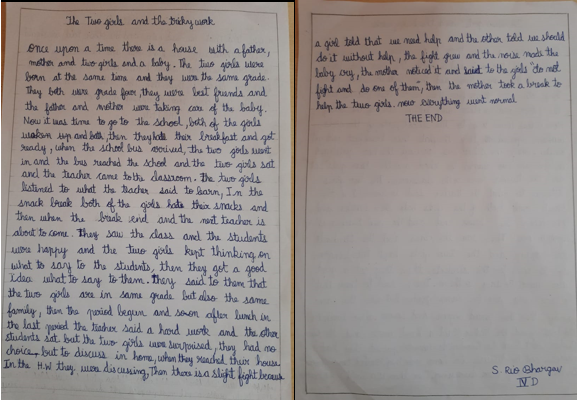 The Two girls and the tricky work
once upon a time there is a house with a father,
mother and two girls and a baby. The two girls were
born at the same time and they were the same grade.
They both were grade four, they were best friends and
the father and mother were taking care of the baby.
Now it was time to go to the school, both of the girls
woken up and bath, then they had their breakfast and got
ready, when the school bus arrived, the two girls went
in and the bus reached the school and the two girls sat
and the teacher came to the classroom. The two girls
listened to what the teacher said to learn, In the
snack break both of the girls hate their snacks and
then when the break end and the next teacher is
about to come. They saw the class and the students
were happy and the two girls kept thinking on
what to say to the students, then they got a good
idea what to say to them. they said to them that
the two girls are in same grade but also the same
family, then the period begun and soon after lunch in
the last period the teacher said a hard work and the other
students sat but the two girls were surpoised, they had no
choice, but to discuss in home, when they reached their house
In the H.W they were discussing, Then there is a slight fight because
a girl told that we need help and the other told we should
do it without help, the fight grew and the noise made the
baby cry, the mother noticed it and said to the girls "do not
fight and do one of them, then the mother took a break to
help the two girls. now everything went normal.
THE END
S. Rio Bhargav
IV D